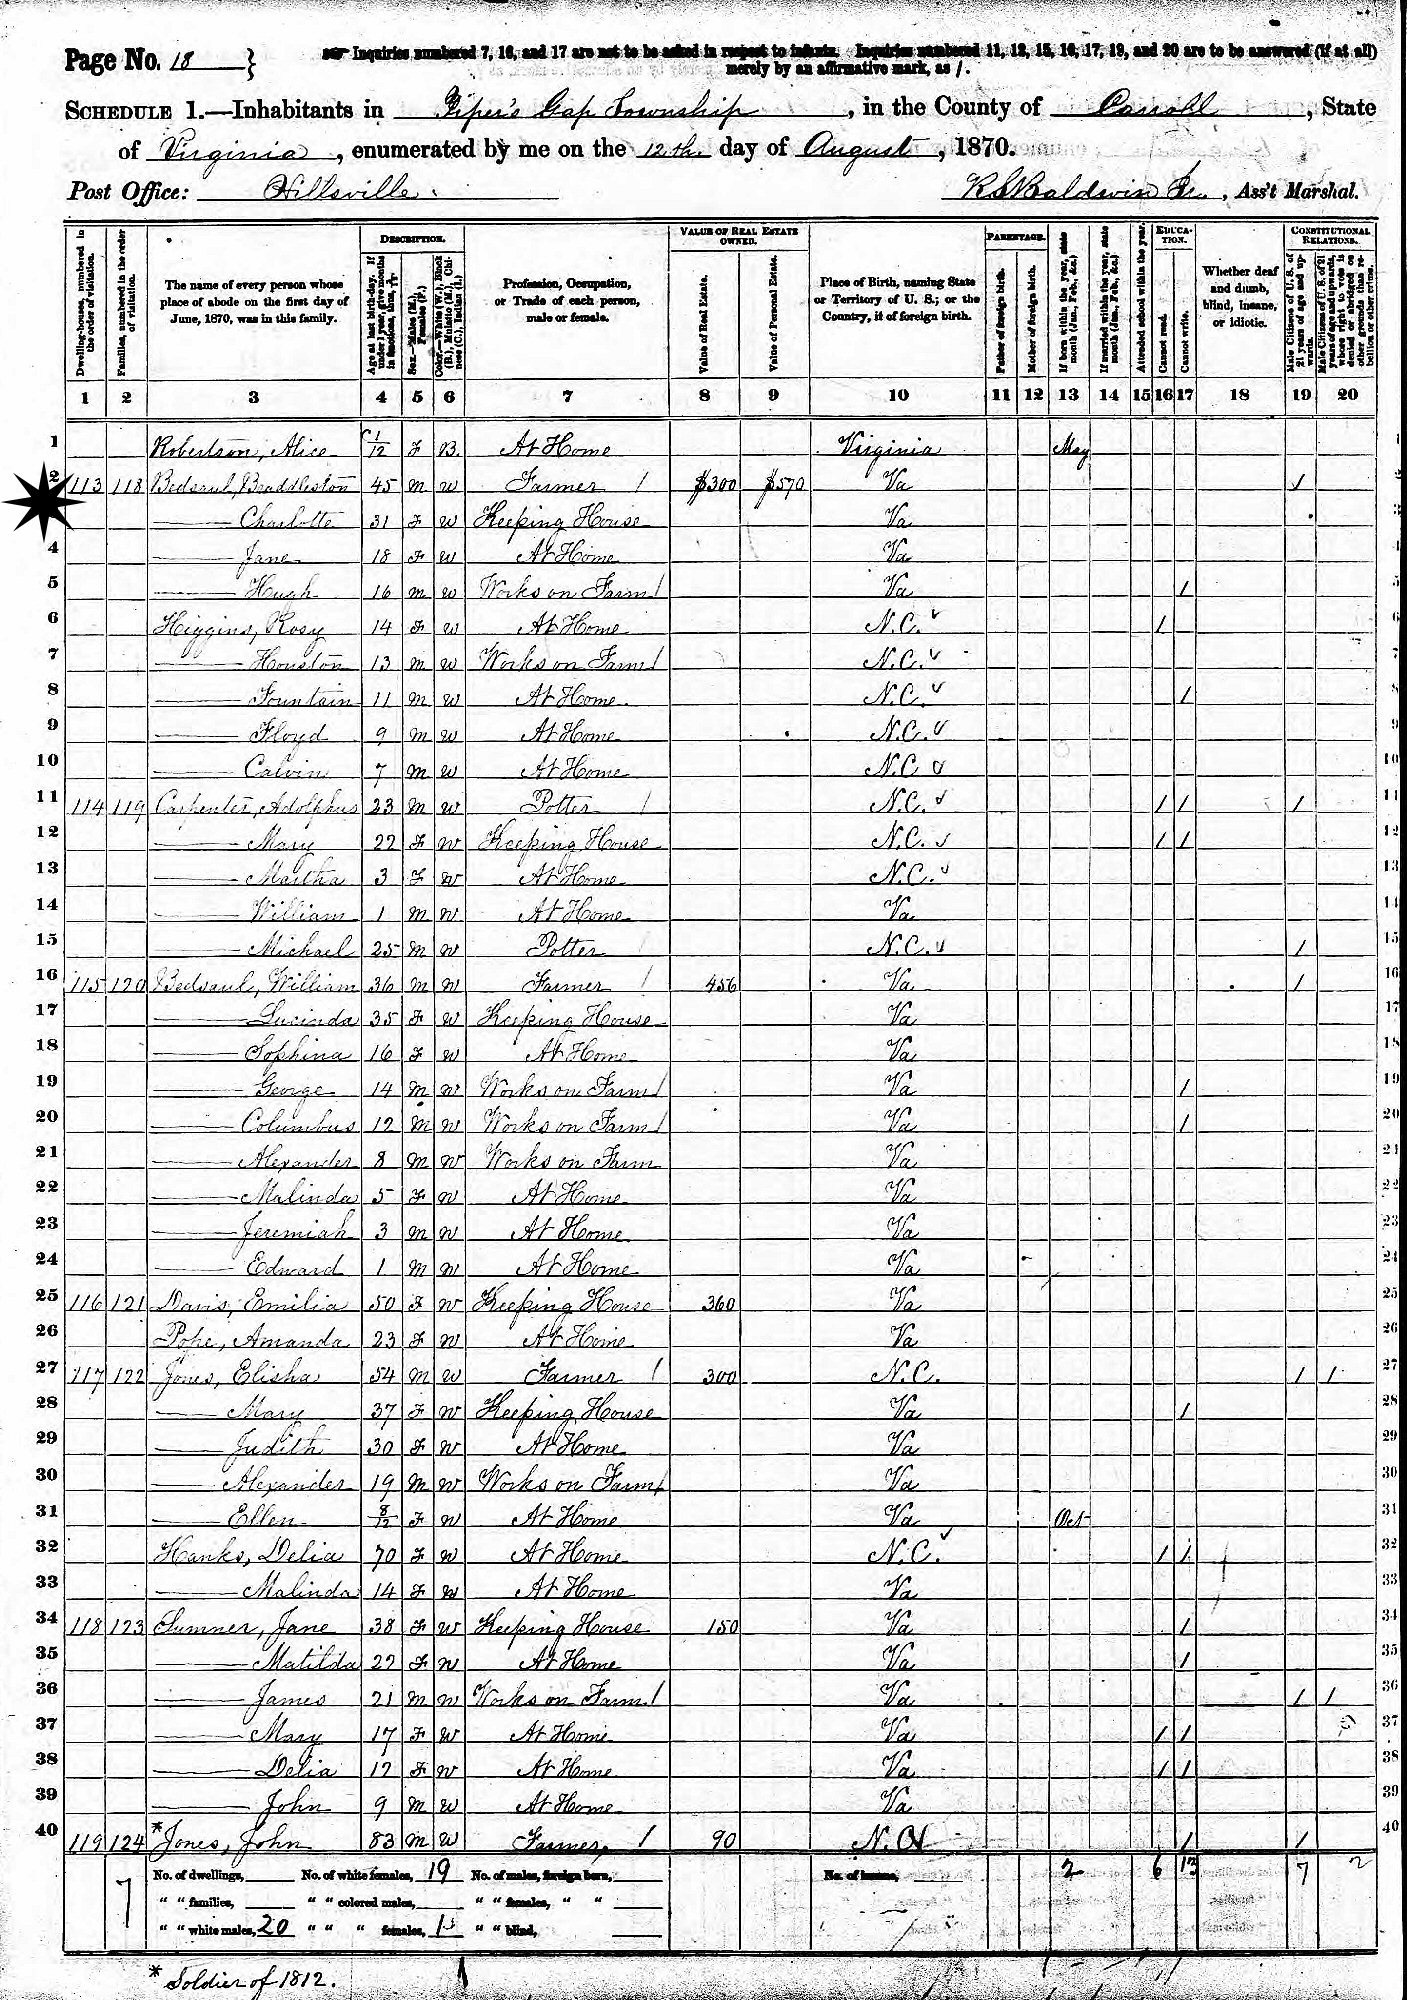 Page No. 18 }
Inquiries numbered 7, 16, and 17 are not to be asked in respect to infants. Inquiries numbered 11, 12, 15, 16, 17, 19, and 20 are to be answered (if at all)
merely by an affirmative mark, as /.
SCHEDULE 1.—Inhabitants in Piper's Gap Township, in the County of Carroll, State
of Virginia, enumerated by me on the 12th day of August, 1870.
Post Office: Hillsville. Baldwin Jr., Ass't Marshal.
Dwelling-houses, numbered in the order of visitation.
Families, numbered in the order of visitation.
The name of every person whose place of abode on the first day of June, 1870, was in this family.
DESCRIPTION.
Age at last birth-day. If under 1 year, give months in fractions, thus, 3/12
Sex.—Males (M.), Females (F.)
Color.—White (W.), Black (B.), Mulatto (M.), Chinese (C.), Indian (I.)
Profession, Occupation, or Trade of each person, male or female.
VALUE OF REAL ESTATE OWNED.
Value of Real Estate.
Value of Personal Estate.
Place of Birth, naming State or Territory of U. S.; or the Country, if of foreign birth.
PARENTAGE.
Father of foreign birth.
Mother of foreign birth.
If born within the year, state month (Jan., Feb., &c.)
If married within the year, state month (Jan., Feb., &c.)
Attended school within the year.
EDUCATION.
Cannot read.
Cannot write.
Whether deaf and dumb, blind, insane, or idiotic.
CONSTITUTIONAL RELATIONS.
Male Citizens of U. S. of 21 years of age and upwards.
Male Citizens of U. S. of 21 years of age and upwards, whose right to vote is denied or abridged on other grounds than rebellion or other crime.
1 2 3 4 5 6 7 8 9 10 11 12 13 14 15 16 17 18 19 20
1 Robertson, Alice 1/12 F B. At Home Virginia May 1
2 113 118 Bedsaul, Braddleston 45 M W Farmer / $300 $570 Va / 2
Charlotte 31 F W Keeping House Va 3
4 Jane 18 F W At Home Va 4
5 Hugh 16 M W Works on Farm / Va / 5
6 Higgins, Rosy 14 F W At Home N.C. / 6
7 Houston 13 M W Works on Farm / N.C. 7
8 Fountain 11 M W At Home N.C. / 8
9 Floyd 9 M W At Home N.C. 9
10 Calvin 7 M W At Home N.C 10
11 114 119 Carpenter, Adolphus 23 M W Potter / N.C. / / / 11
12 Mary 22 F W Keeping House N.C. / / 12
13 Martha 3 F W At Home N.C. 13
14 William 1 M W At Home Va 14
15 Michael 25 M W Potter / N.C. / 15
16 115 120 Bedsaul, William 36 M W Farmer / 456 Va / 16
17 Lucinda 35 F W Keeping House Va 17
18 Sophina 16 F W At Home Va 18
19 George 14 M W Works on Farm / Va / 19
20 Columbus 12 M W Works on Farm / Va / 20
21 Alexander 8 M W Works on Farm Va 21
22 Malinda 5 F W At Home Va 22
23 Jeremiah 3 M W At Home Va 23
24 Edward 1 M W At Home Va 24
25 116 121 Davis, Emilia 50 F W Keeping House 360 Va 25
26 Pope, Amanda 23 F W At Home Va 26
27 117 122 Jones, Elisha 54 M W Farmer / 300 N.C. / / 27
28 Mary 37 F W Keeping House Va / 28
29 Judith 30 F W At Home Va 29
30 Alexander 19 M W Works on Farm / Va 30
31 Ellen 8/12 F W At Home Va Oct 31
32 Hanks, Delia 70 F W At Home N.C. / / 32
33 Malinda 14 F W At Home Va 33
34 118 123 Sumner, Jane 38 F W Keeping House 150 Va / 34
35 Matilda 22 F W At Home Va / 35
36 James 21 M W Works on Farm / Va / / 36
37 Mary 17 F W At Home Va / / 37
38 Delia 12 F W At Home Va / / 38
39 John 9 M W At Home Va 39
40 119 124 *Jones, John 83 M W Farmer, / 90 N.C / / 40
7 No. of dwellings, No. of white females, 19 No. of males, foreign born, No. of insane, 2 6 13 7 2
" " families, " " colored males, " " females, " "
" " white males, 20 " " " females, 1 " " blind,
* Soldier of 1812.